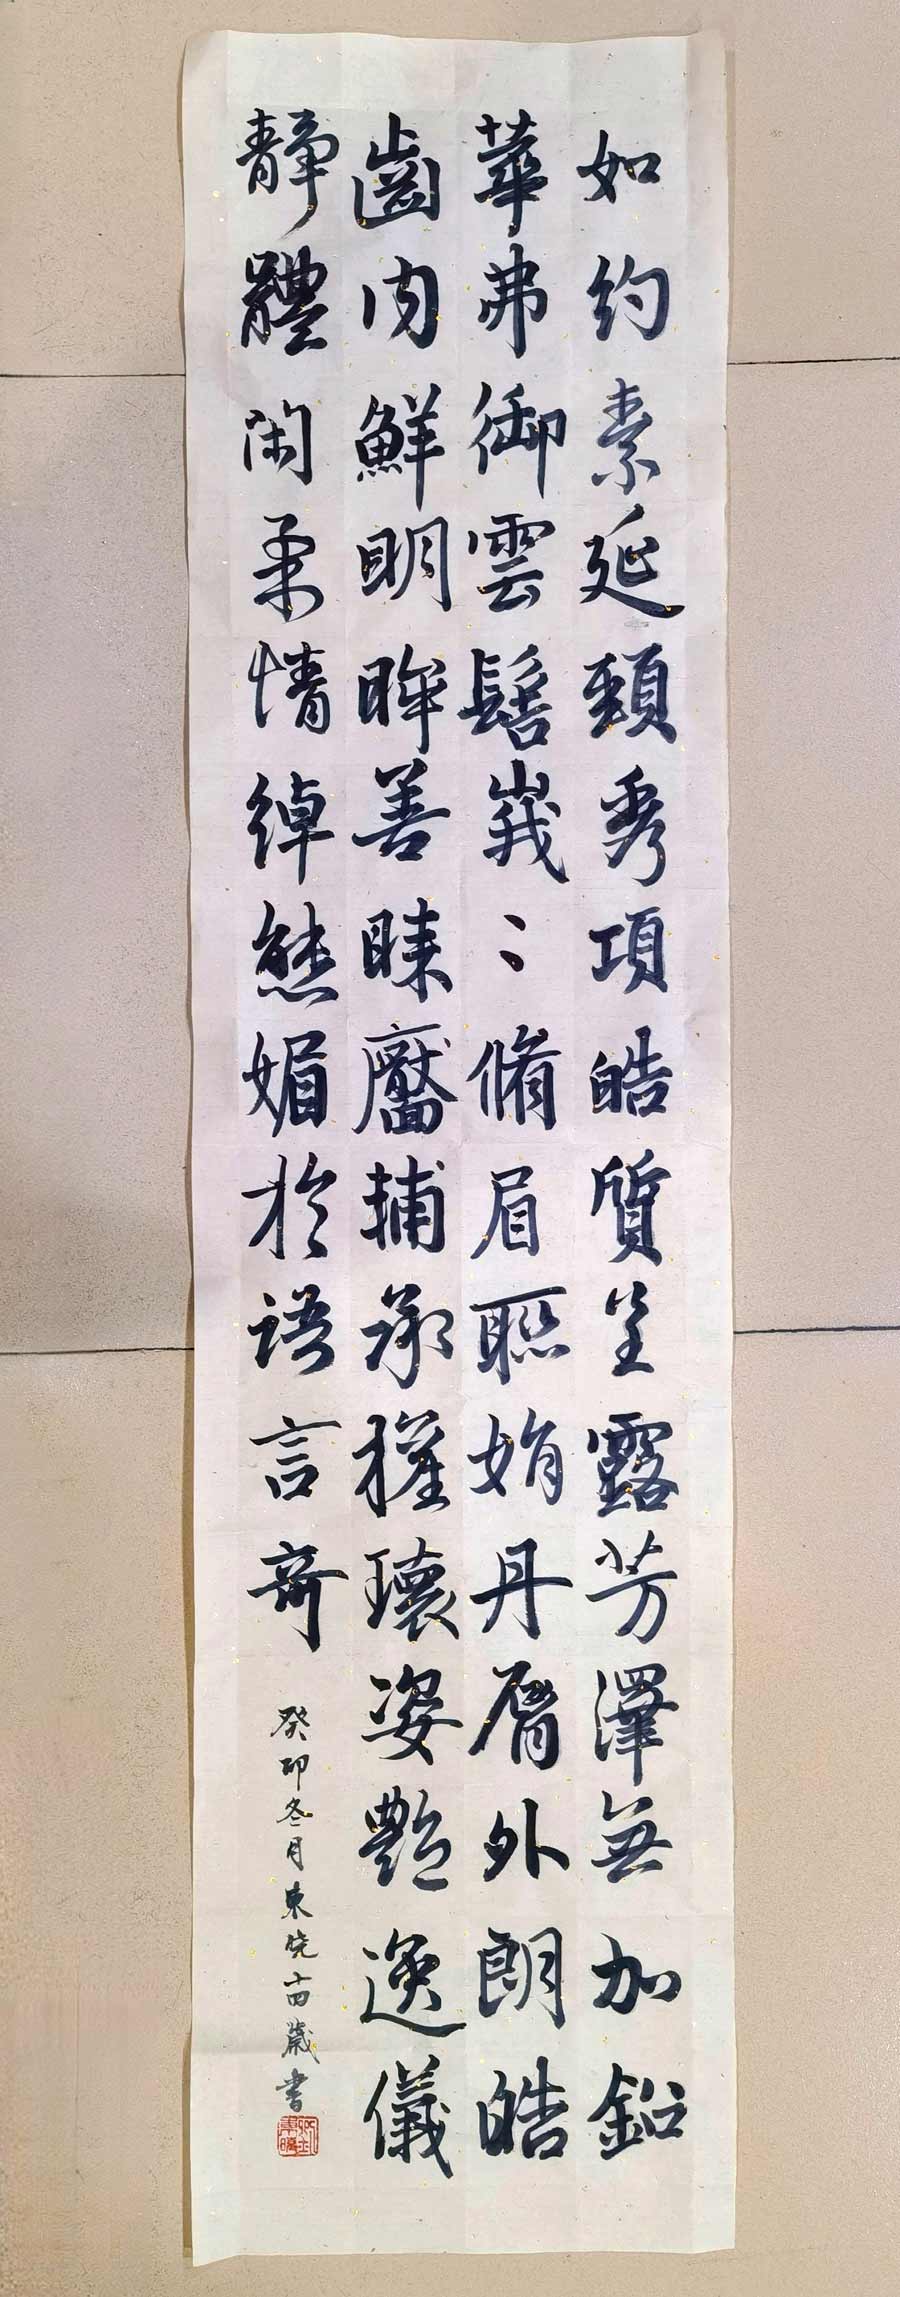 如約素延頸秀項皓質呈露芳澤無加鉛
華弗御雲髻峩〻脩眉聯娟丹脣外朗皓
齒内鮮明眸善睞靨輔承權瓌姿艷逸儀
靜體閑柔情綽態媚於語言奇
癸卯冬月東晓十四歲書